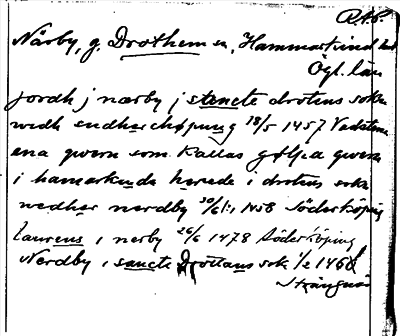 RAP.
Närby, g. Drothem sn, Hammarkind hd
Ögl. län
jordh j nærby j sancte drotens sokn
widh sudherchøpung 18/5 1457 Vadstena
ena qwern som kallas gølja qwern
i hamarkinda herede i drotens sokn
nedher nerdby 30/6 1458 Söderköping
laurens i nerby 26/6 1478 Söderköping
Nerdby i sancte Drottans sok 1/2 1466
Strängnäs